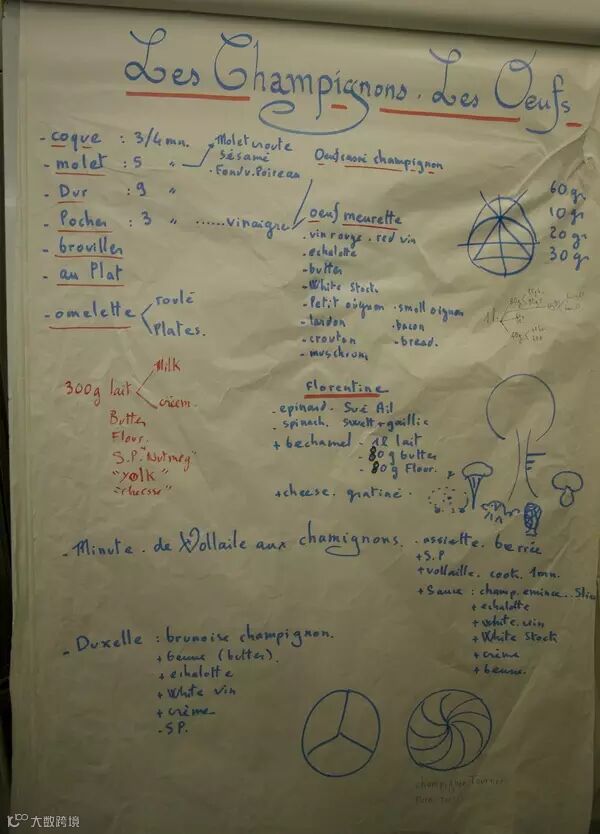 Les Champignons. Les Oeufs
- coque : 3/4 mn.
- molet : 5 "
- Molet croute
sésame
- Fondu. Poireau
- Dur : 9 "
- Pocher : 3 " ...... vinaigre
- brouiller
- au Plat
- omelette
roulé
Plates.
Oeuf cassé champignon
oeuf meurette
- vin rouge. red vin
- echalotte
- butter
- White Stock
- Petit oignon - small oignon
- lardon - bacon
- crouton - bread.
- muschrom
60 gr
10 gr
20 gr
30 gr
1l
300g lait
Milk
creem
Butter
Flour.
S.P. "Nutmeg"
"yolk"
"cheesse"
Florentine
- epinard. Sué Ail
- spinach. swett + gaillic
+ bechamel - 1l lait
- 80g butter
- 80g Flour.
+ cheese. gratiné.
- Minute. de Vollaile aux chamignons.
- assiette. berrée
+ S.P
+ vollaille. cook. 1mn.
+ Sauce : champ. emince..
+ echalotte
+ white. vin
+ White Stock
+ crème
+ beurre.
- Duxelle : brunoise champignon.
+ beurre (butter).
+ echalotte
+ White vin
+ crème
- S.P.
champignon Tourner
大数跨境